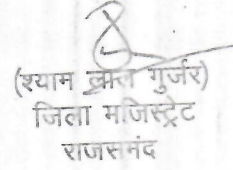 (श्याम लाल गुर्जर)
जिला मजिस्ट्रेट
राजसमंद